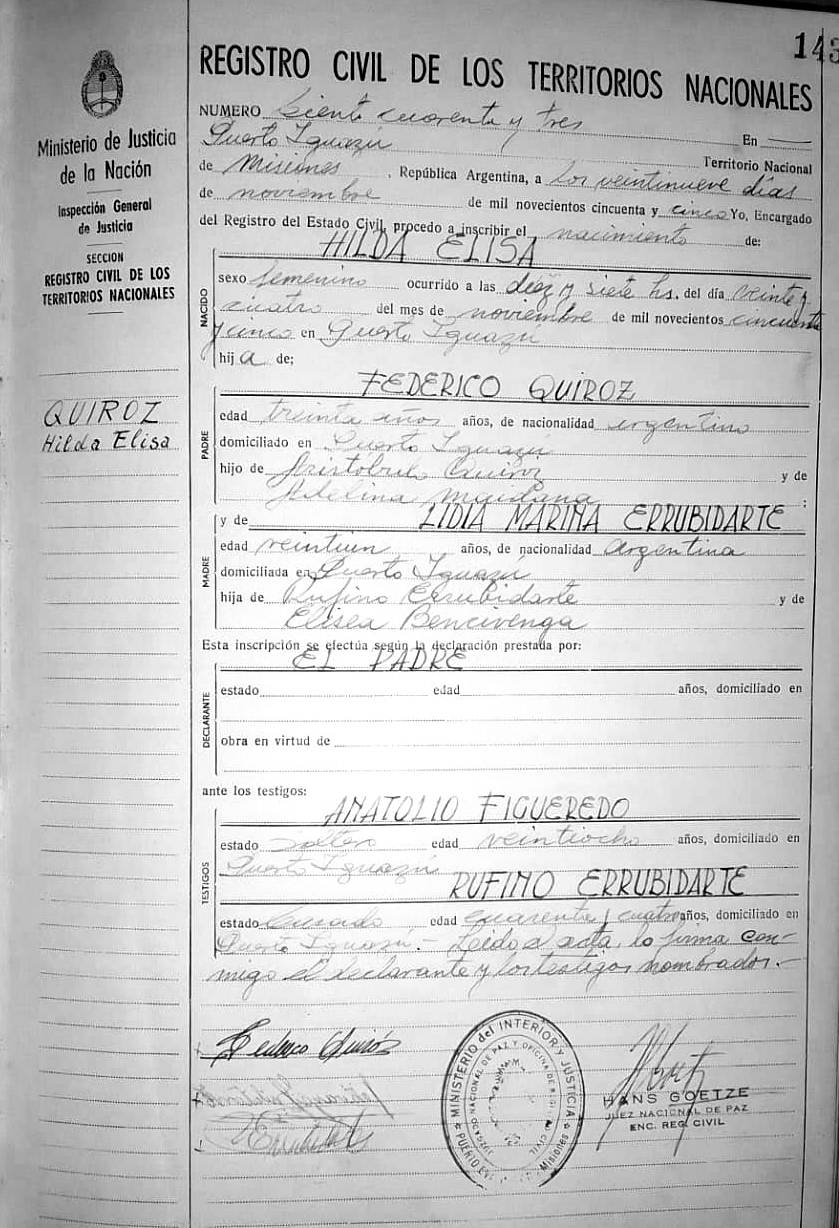 143
REGISTRO CIVIL DE LOS TERRITORIOS NACIONALES
Ministerio de Justicia
de la Nación
Inspección General
de Justicia
SECCION
REGISTRO CIVIL DE LOS
TERRITORIOS NACIONALES
QUIROZ
Hilda Elisa
NUMERO Ciento cuarenta y tres En
Puerto Iguazú Territorio Nacional
de Misiones, República Argentina, a los veintinueve días
de noviembre de mil novecientos cincuenta y cinco Yo, Encargado
del Registro del Estado Civil, procedo a inscribir el nacimiento de:
HILDA ELISA
NACIDO
sexo femenino ocurrido a las diez y siete hs. del día veinte y
cuatro del mes de noviembre de mil novecientos cincuenta
y cinco en Puerto Iguazú
hija de;
FEDERICO QUIROZ
PADRE
edad treinta años años, de nacionalidad argentino
domiciliado en Puerto Iguazú
hijo de Aristobulo Quiroz y de
Adelina ;
y de LIDIA MARINA ERRUBIDARTE
MADRE
edad veintiun años, de nacionalidad Argentina
domiciliada en Puerto Iguazú
hija de Rufino Errubidarte y de
Elisea Bencivenga
Esta inscripción se efectúa según la declaración prestada por:
EL PADRE
DECLARANTE
estado edad años, domiciliado en
obra en virtud de
ante los testigos:
ANATOLIO FIGUEREDO
TESTIGOS
estado soltero edad veintiocho años, domiciliado en
Puerto Iguazú
RUFINO ERRUBIDARTE
estado Casado edad cuarenta y cuatro años, domiciliado en
Puerto Iguazú.- Leido el acta, lo firma con-
migo el declarante y los testigos nombrados.-
Federico Quiróz
MINISTERIO del INTERIOR y JUSTICIA
JUZGADO NACIONAL DE PAZ Y OFICINA DE REGISTRO CIVIL
PUERTO Misiones
HANS GOETZE
JUEZ NACIONAL DE PAZ
ENC. REG. CIVIL